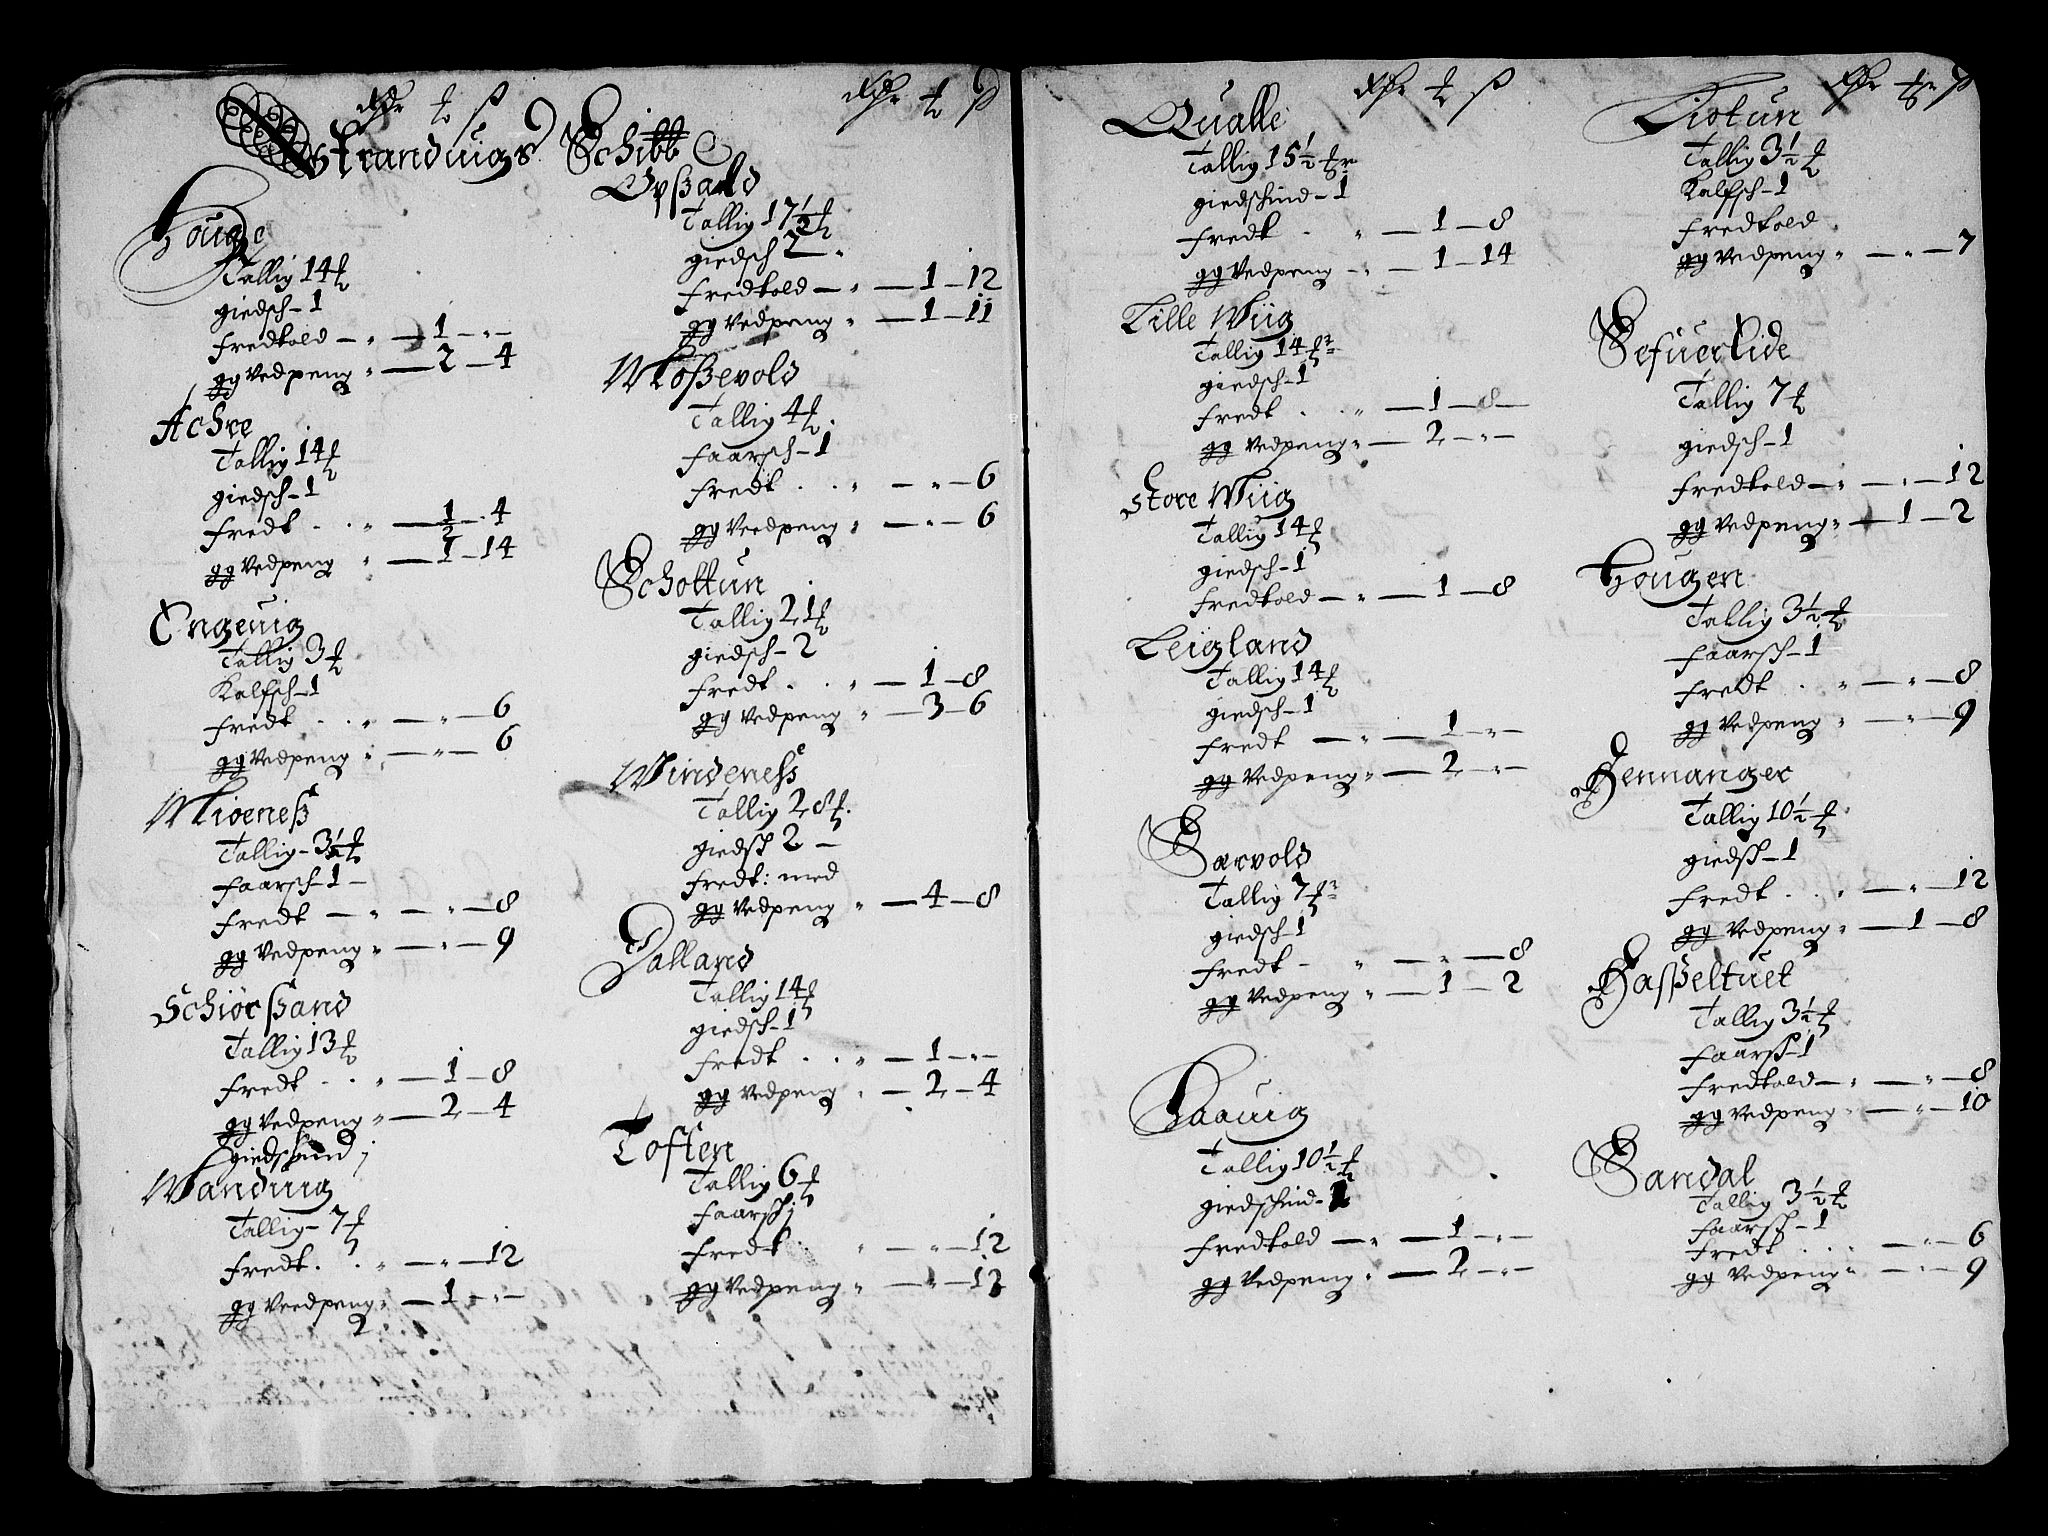 Stranduigs Schibb
Houge
Tallig 14
giedsch - 1
Fredkold — „ — 1 — „ —
gg Vedpeng „ — 2 — 4
Achre
Tallig 14
giedsch - 1
Fredk . . „ — 1/2 — 4
gg Vedpeng „ — 1 — 14
Engeuig
Tallig 3
Kalfsch - 1
Fredk . . „ — „ — 6
gg Vedpeng „ — „ — 6
Mioeneß
Tallig - 3½
Faarsch - 1 —
Fredk — „ — „ — 8
gg Vedpeng „ — „ — 9
Schiørßand
Tallig 13
Fredk . . „ — 1 — 8
gg Vedpeng „ — 2 — 4
giedshind j
Wanduig
Tallig - 7
Fredk . . „ — „ — 12
gg Veedpeng „ — 1 — „ —
2
Opßald
Tallig 17½
giedsch 2 „
Fredkold — „ — 1 — 12
gg Vedpeng „ — 1 — 11
Moßevold
Tallig 4
Faarsch - 1
Fredk . . „ — „ — 6
gg Veedpeng „ — „ — 6
Schottun
Tallig 21
giedsch - 2
Fredk . . „ — 1 — 8
gg Vedpeng „ — 3 — 6
Windeness
Tallig 28
giedsch 2 —
Fredk: med
gg Vedpeng „ — 4 — 8
Dalland
Tallig 14
giedsch - 1
Fredk . . „ — 1 — „ —
gg Vedpeng „ — 2 — 4
Toften
Tallig 6
Faarsch j
Fredk . . „ — „ — 12
gg Vedpeng „ — „ — 12
Qualle
Tallig 15½
giedschind - 1
Fredk . „ — 1 — 8
gg Vedpeng — „ — 1 — 14
Lille Wiig
Tallig 14
giedsch - 1
Fredk . . „ — 1 — 8 —
gg Vedpeng „ — 2 — „ —
Store Wiig
Tallig 14
giedsch - 1
Fredkold — „ — 1 — 8
Leigland
Tallig 14
giedsch - 1
Fredk — „ — 1 — „ —
gg Vedpeng „ — 2 — „ —
Særvold
Tallig 7
giedsch 1
Fredk - „ — „ — 8
gg Vedpeng „ — 1 — 2
Haauig
Tallig 10½
giedschind - 1
Fredkold — „ — 1 — „ —
gg Vedpeng „ — 2 — „ —
Listun
Tallig 3½
Kalfsch - 1
Fredkold
gg Vedpeng „ — „ — 7
Sefuerlide
Tallig 7
giedsch - 1
Fredkold — „ — „ — 12
gg Vedpeng „ — 1 — 2
Hougen
Tallig 3½
Faarsch - 1
Fredk . „ — „ — 8
gg Vedpeng „ — „ — 9
Hennanger
Tallig 10½
giedsch - 1
Fredk . . „ — „ — 12
gg Vedpeng „ — 1 — 8
Haßeltuet
Tallig 3½
Faarsch - 1
Fredkold — „ — „ — 8
gg Vedpeng „ — „ — 10
Sandal
Tallig 3½
Faarsch - 1
Fredk . . . — „ — 6
gg Vedpeng „ — „ — 9